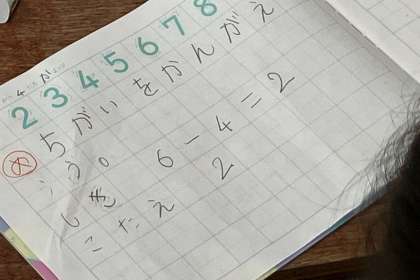 2 3 4 5 6 7 8
め ちがいをかんがえ
よう。
しき 6－4＝2
こたえ 2